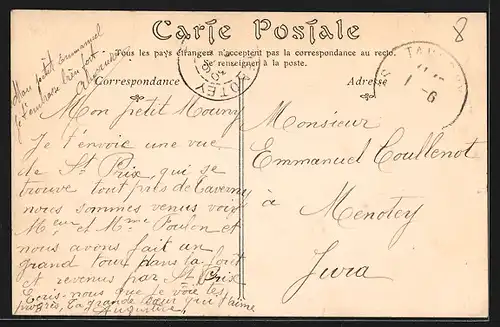 Carte Postale
Tous les pays étrangers n'acceptent pas la correspondance au recto.
Se renseigner à la poste.
Correspondance
Adresse
8
Mon petit Emmanuel
je t'embrasse bien fort
Mon petit Mouny
Je t'envoie une vue
de St Prix, qui se
trouve tout près de Taverny
nous sommes venus voir
Meur et Mme Foulon et
nous avons fait un
grand tour dans la forêt
et revenus par St Prix
Ecris-nous que je voie tes
progrès, ta grande sœur qui t'aime
Augustine
Monsieur
Emmanuel Coullenot
à
Menotey
Jura